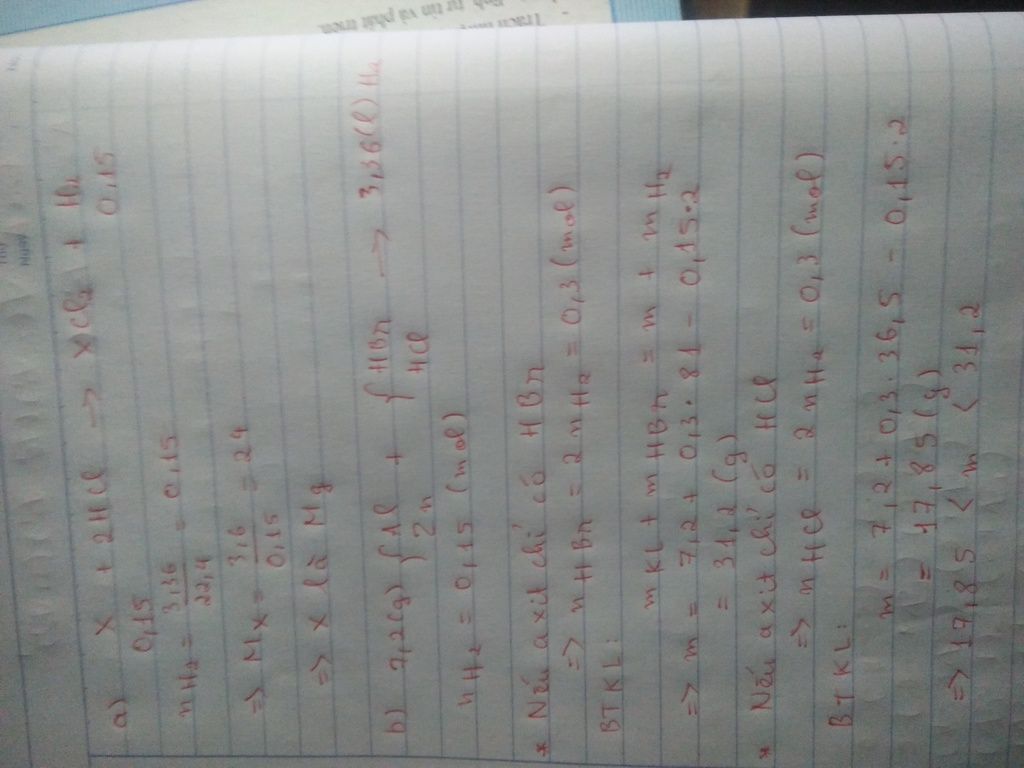 Trách nhiệ
tự tin và phát triển.
a) X + 2HCl → XCl2 + H2
0,15 0,15
nH2 = 3,36/22,4 = 0,15
=> MX = 3,6/0,15 = 24
=> X là Mg
b) 7,2(g) { Al + { HBr → 3,36(l) H2
Zn HCl
nH2 = 0,15 (mol)
* Nếu axit chỉ có HBr
=> nHBr = 2nH2 = 0,3 (mol)
BTKL:
mKL + mHBr = m + mH2
=> m = 7,2 + 0,3.81 - 0,15.2
= 31,2 (g)
* Nếu axit chỉ có HCl
=> nHCl = 2nH2 = 0,3 (mol)
BTKL:
m = 7,2 + 0,3.36,5 - 0,15.2
= 17,85 (g)
=> 17,85 < m < 31,2